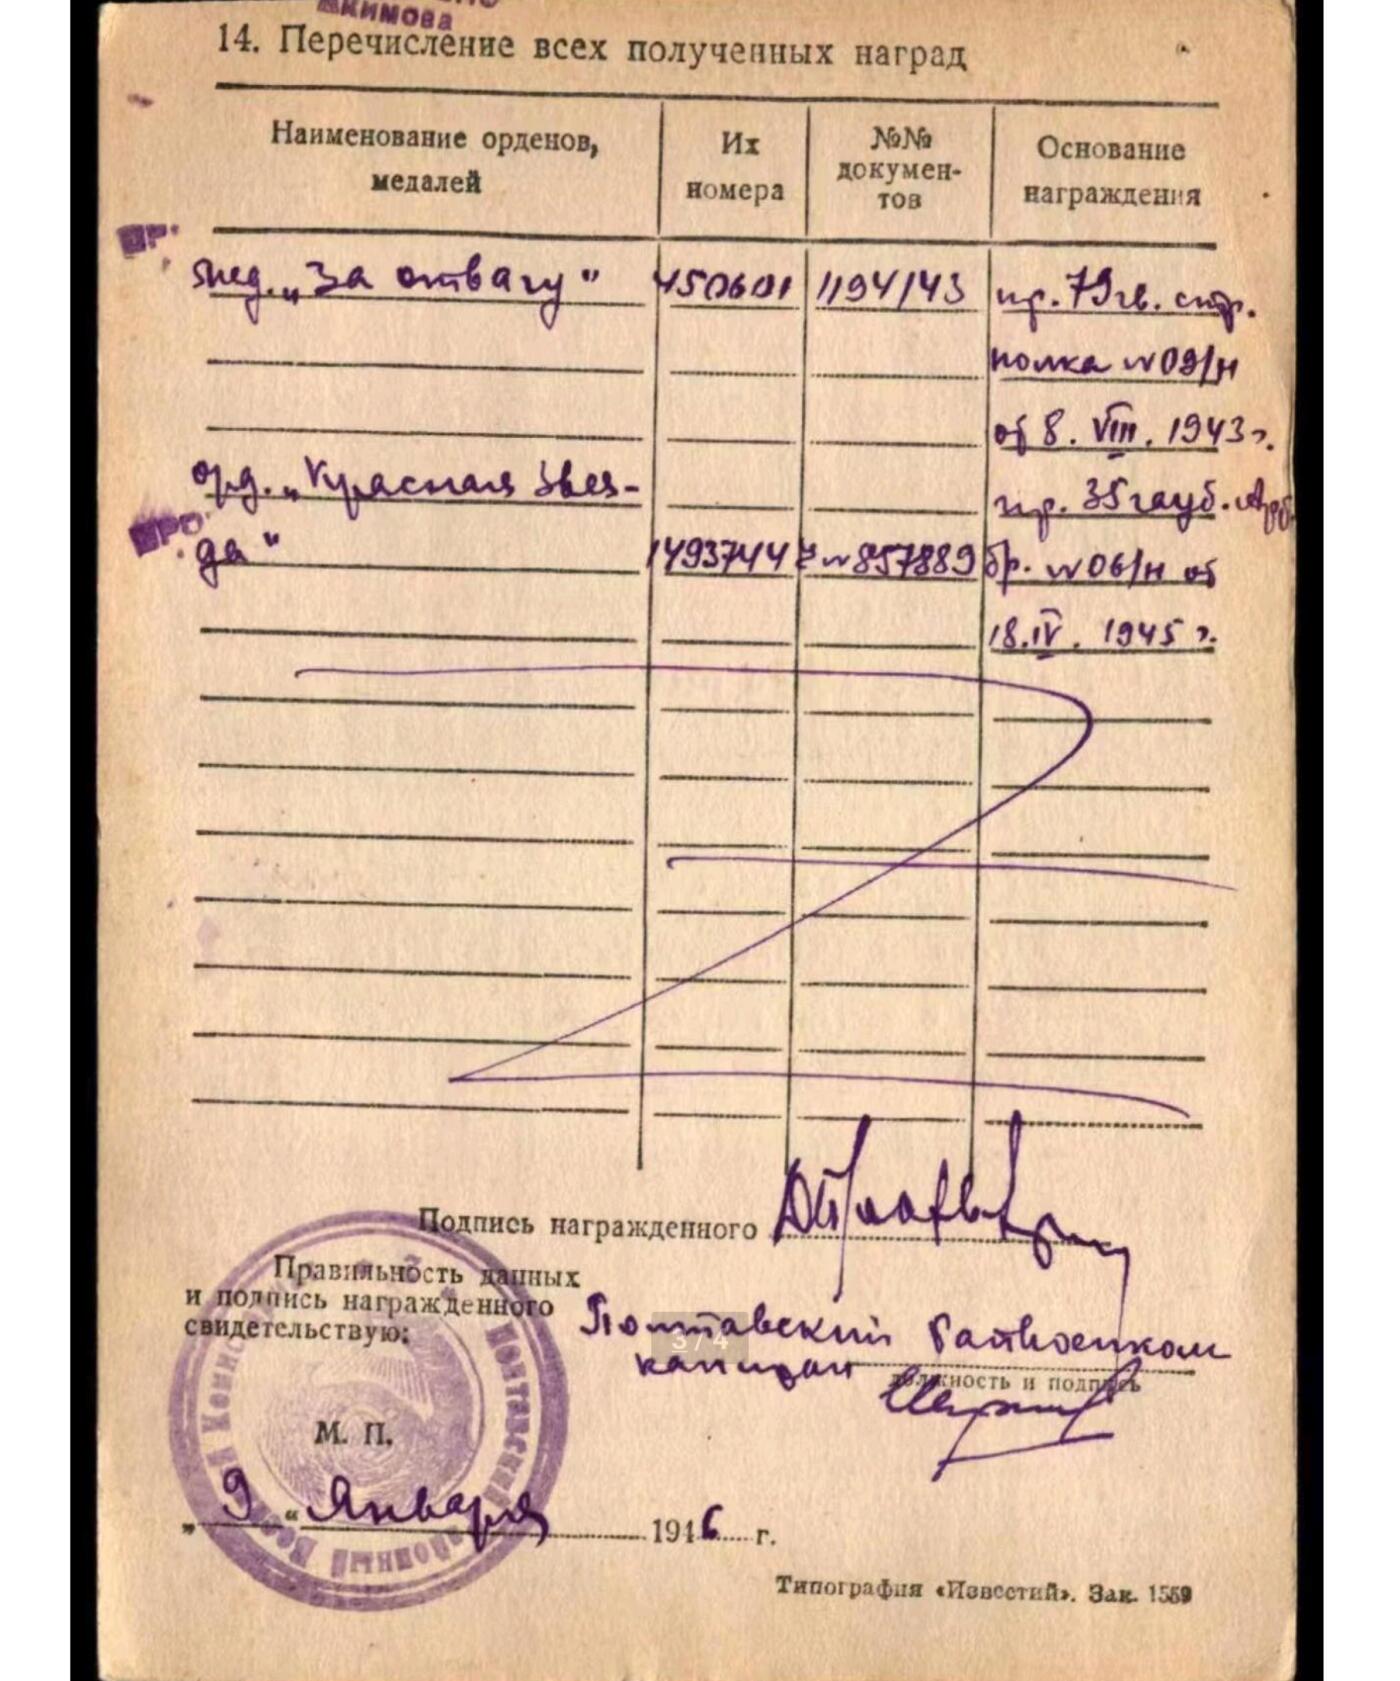 Акимова
14. Перечисление всех полученных наград
Наименование орденов, медалей
Их номера
№№ докумен-
тов
Основание награждения
мед. „За отвагу" 450601 1194/43 пр. 79 гв. стр.
полка № 09/н
от 8. VIII. 1943 г.
орд. „Красная Звез- пр. 35 гауб. Арт.
ПРО
да" 1493744 № 857889 бр. № 06/н от
18. IV. 1945 г.
Подпись награжденного
Правильность данных
и подпись награжденного
свидетельствую:
Полтавский Райвоенком
капитан
должность и подпись
3 / 4
М. П.
„ 9 " Января 1946 г.
Типография «Известий». Зак. 1559